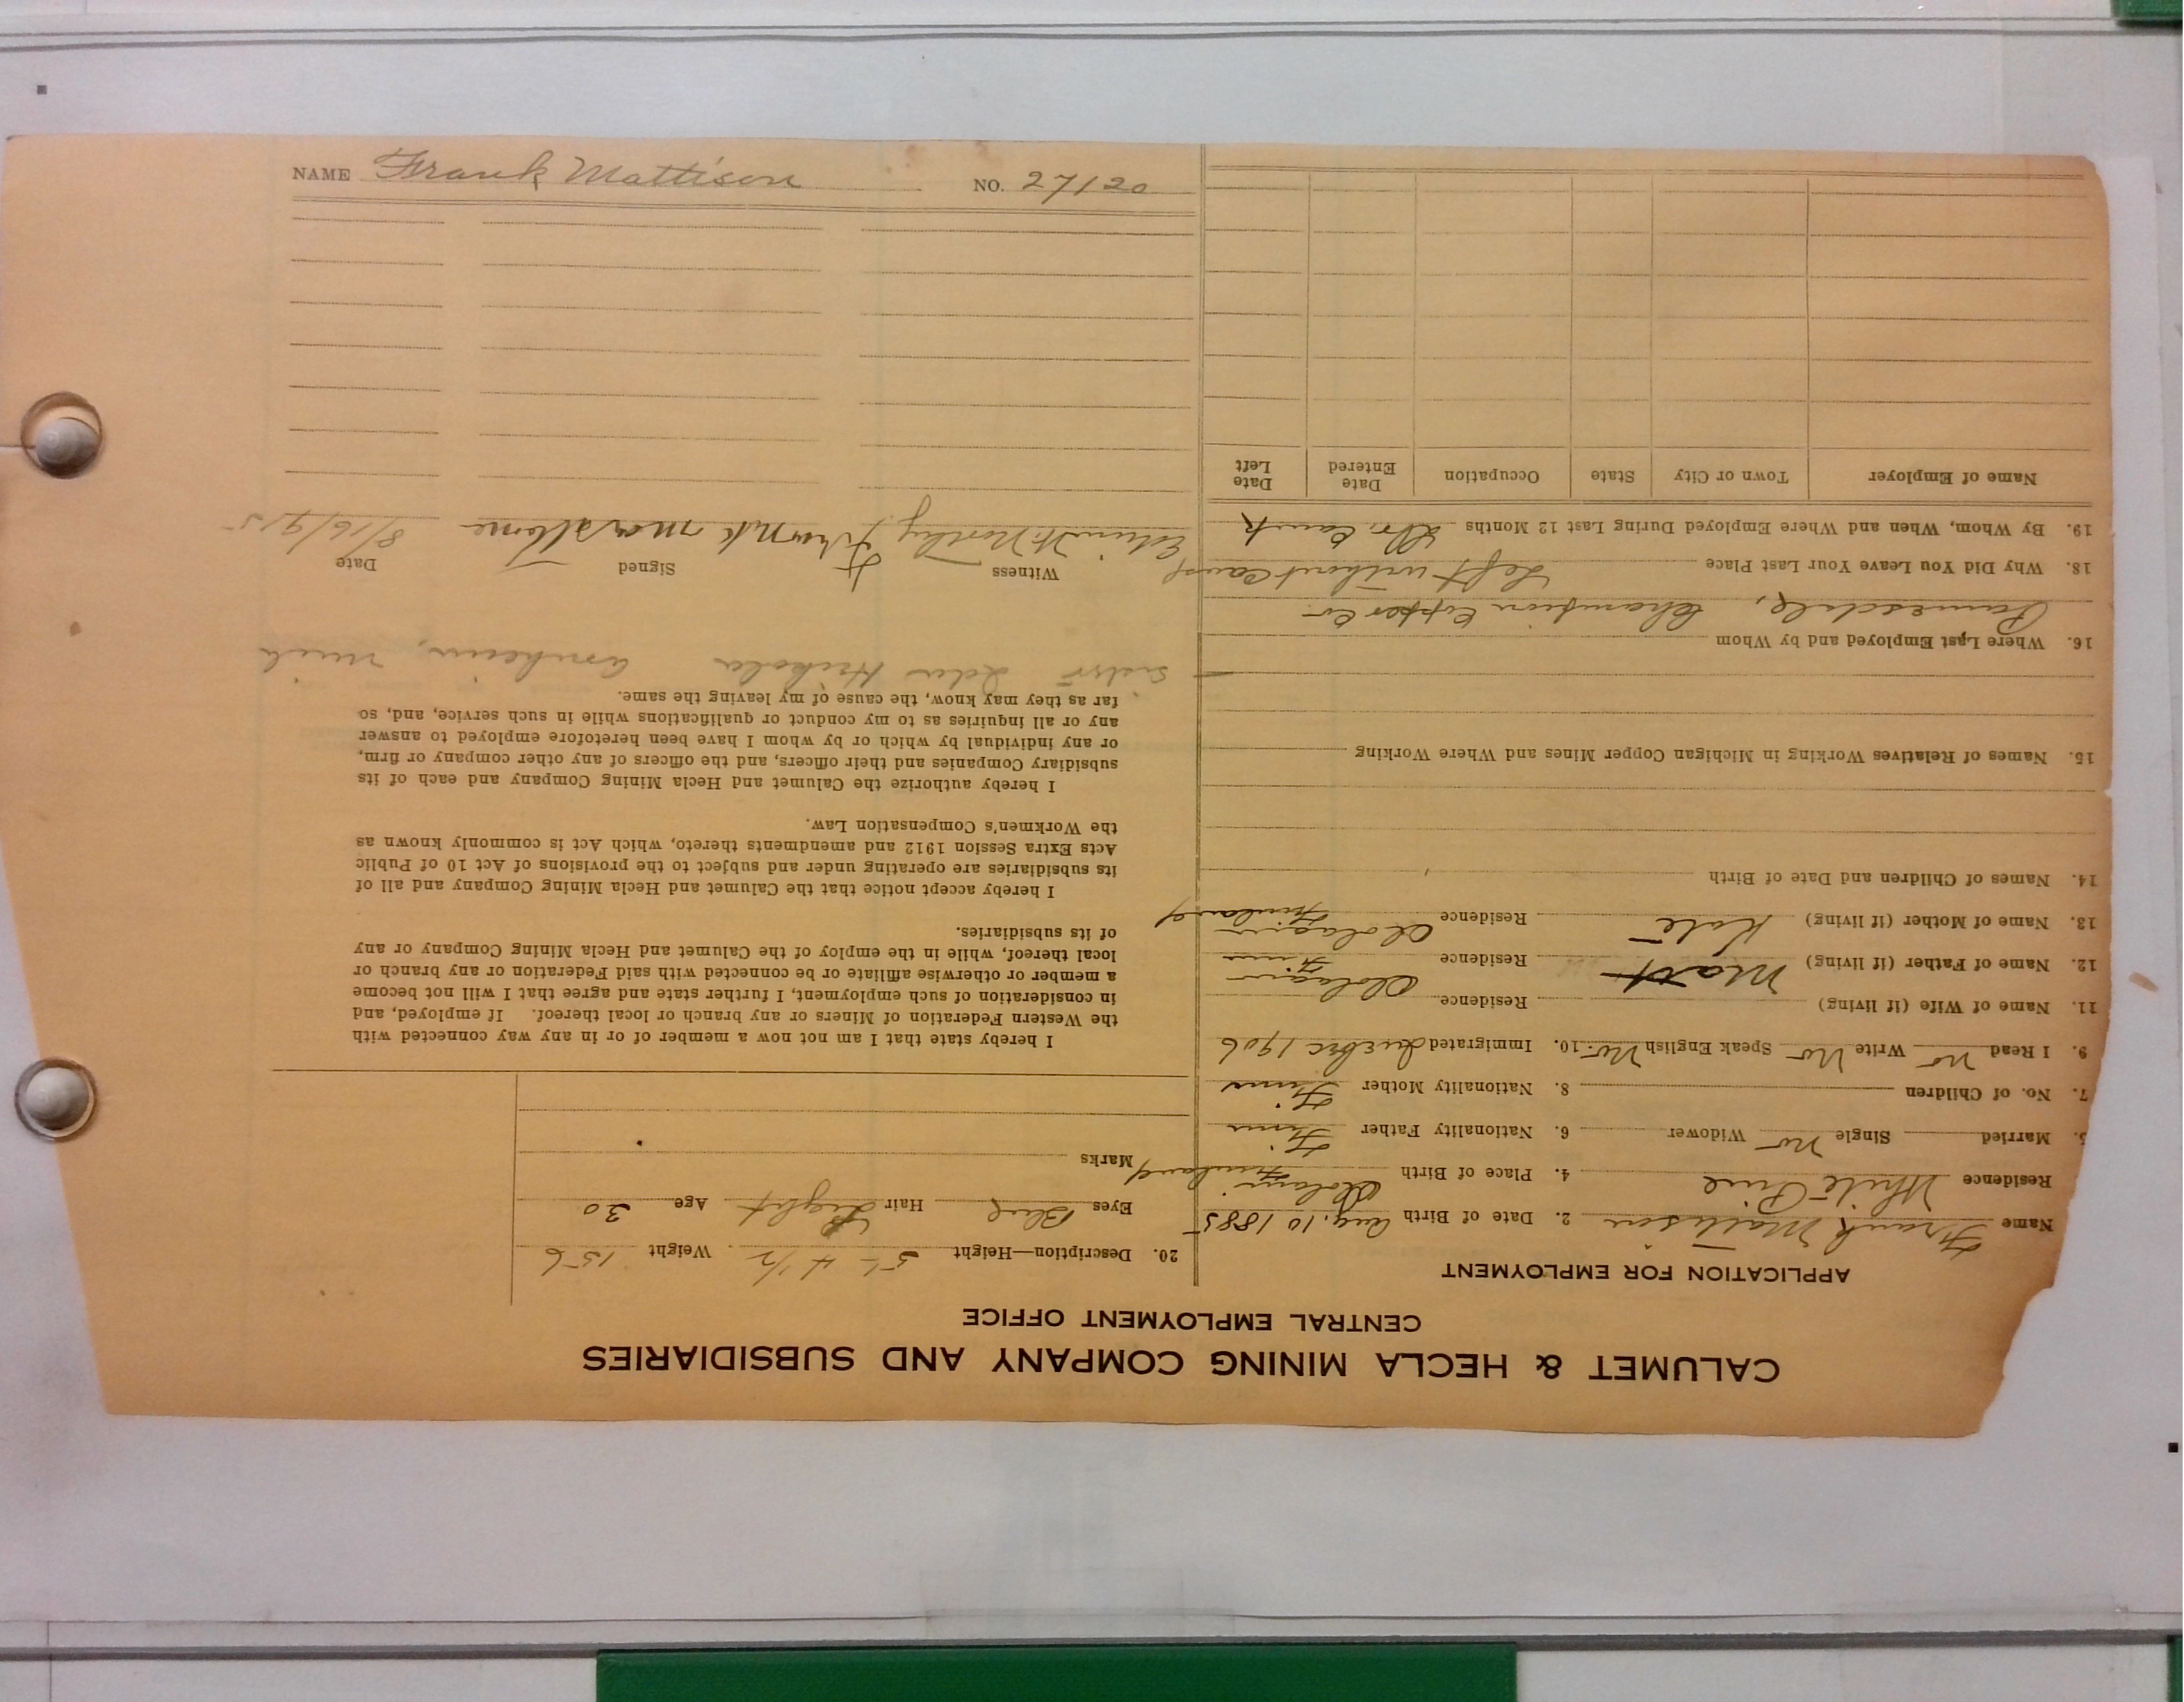 CALUMET & HECLA MINING COMPANY AND SUBSIDIARIES
CENTRAL EMPLOYMENT OFFICE
APPLICATION FOR EMPLOYMENT
Name Frank Mattison 2. Date of Birth Aug. 10 1885
Residence White Pine 4. Place of Birth Finland
Married Single No Widower 6. Nationality Father Finn
7. No. of Children 8. Nationality Mother Finn
9. I Read No Write No Speak English No 10. Immigrated Quebec 1906
11. Name of Wife (if living) Residence
12. Name of Father (if living) Matt Residence Finn
13. Name of Mother (if living) Kate Residence Finland
14. Names of Children and Date of Birth
15. Names of Relatives Working in Michigan Copper Mines and Where Working
16. Where Last Employed and by Whom
Painesdale, Champion Copper Co.
18. Why Did You Leave Your Last Place Left without cause
19. By Whom, When and Where Employed During Last 12 Months
Name of Employer Town or City State Occupation Date Entered Date Left
20. Description—Height 5' 4 1/2 Weight 156
Eyes Blue Hair Light Age 30
Marks
I hereby state that I am not now a member of or in any way connected with
the Western Federation of Miners or any branch or local thereof. If employed, and
in consideration of such employment, I further state and agree that I will not become
a member or otherwise affiliate or be connected with said Federation or any branch or
local thereof, while in the employ of the Calumet and Hecla Mining Company or any
of its subsidiaries.
I hereby accept notice that the Calumet and Hecla Mining Company and all of
its subsidiaries are operating under and subject to the provisions of Act 10 of Public
Acts Extra Session 1912 and amendments thereto, which Act is commonly known as
the Workmen's Compensation Law.
I hereby authorize the Calumet and Hecla Mining Company and each of its
subsidiary Companies and their officers, and the officers of any other company or firm,
or any individual by which or by whom I have been heretofore employed to answer
any or all inquiries as to my conduct or qualifications while in such service, and, so
far as they may know, the cause of my leaving the same.
Mich
Witness Signed Date
Frank 8/16/915
NAME Frank Mattison NO. 27120